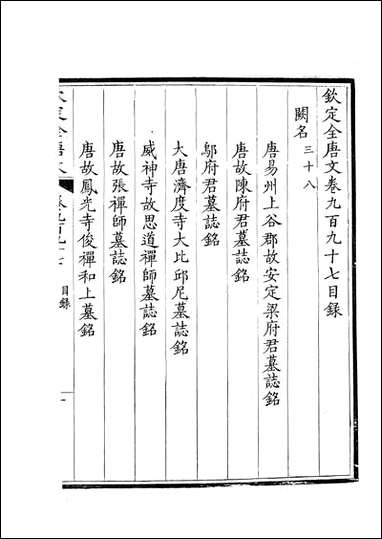 欽定全唐文卷九百九十七目錄
闕名三十八
唐易州上谷郡故安定梁府君墓誌銘
唐故陳府君墓誌銘
鄔府君墓誌銘
大唐濟度寺大比邱尼墓誌銘
威神寺故思道禪師墓誌銘
唐故張禪師墓誌銘
唐故鳳光寺俊禪和上墓銘
目錄
一